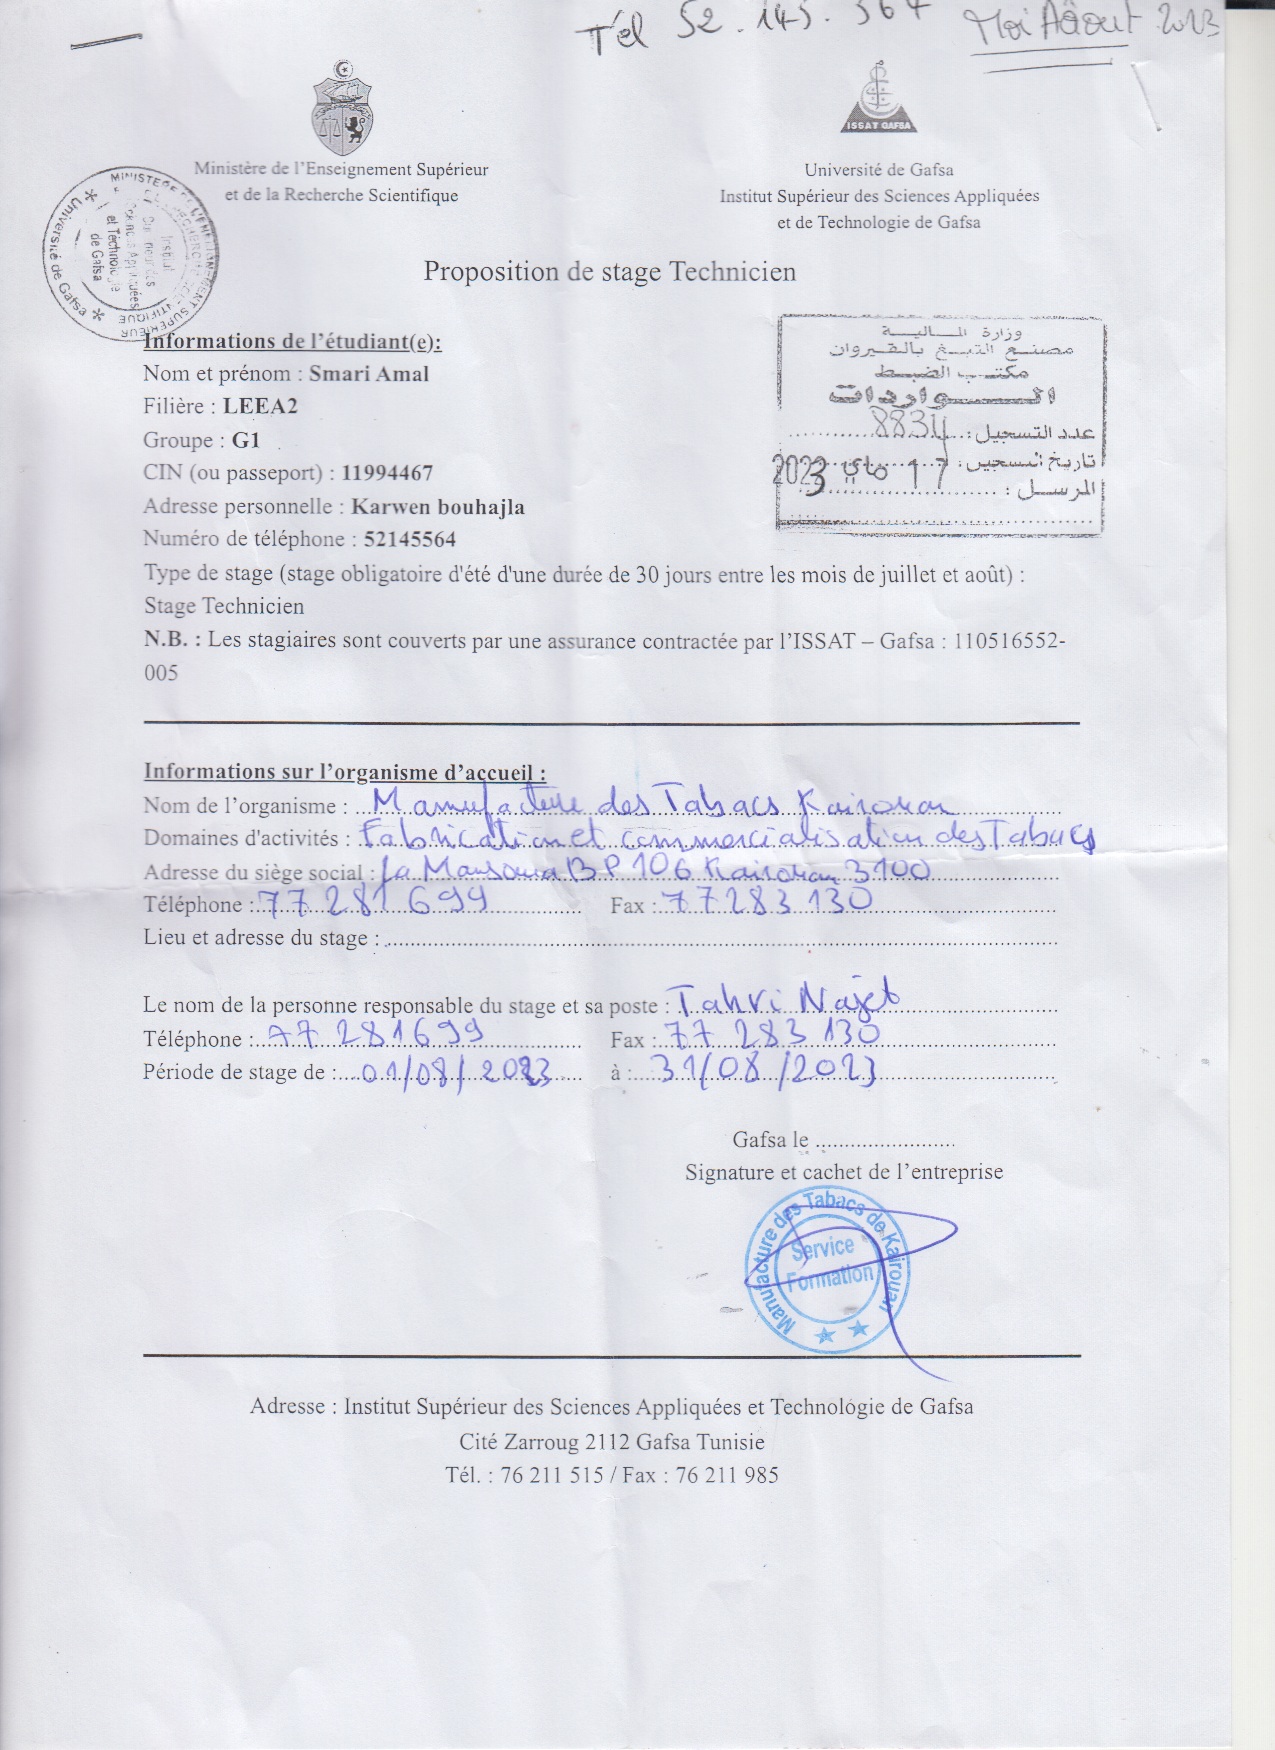 Tél 52.145.564 Moi Aâout 2023
ISSAT GAFSA
Ministère de l'Enseignement Supérieur
et de la Recherche Scientifique
Université de Gafsa
Institut Supérieur des Sciences Appliquées
et de Technologie de Gafsa
Université de Gafsa
et Technologie
de Gafsa
Proposition de stage Technicien
وزارة المالية
مصنع التبغ بالقيروان
مكتب الضبط
الواردات
عدد التسجيل : 8834
تاريخ التسجيل : 17 ماي 2023
المرسل :
Informations de l'étudiant(e):
Nom et prénom : Smari Amal
Filière : LEEA2
Groupe : G1
CIN (ou passeport) : 11994467
Adresse personnelle : Karwen bouhajla
Numéro de téléphone : 52145564
Type de stage (stage obligatoire d'été d'une durée de 30 jours entre les mois de juillet et août) :
Stage Technicien
N.B. : Les stagiaires sont couverts par une assurance contractée par l'ISSAT – Gafsa : 110516552-
005
Informations sur l'organisme d'accueil :
Nom de l'organisme : Manufacture des Tabacs Kairouan
Domaines d'activités : Fabrication et commercialisation des Tabacs
Adresse du siège social : La Mansoura BP 106 Kairouan 3100
Téléphone : 77 281 699 Fax : 77 283 130
Lieu et adresse du stage :
Le nom de la personne responsable du stage et sa poste : Tahri Najet
Téléphone : 77 281 699 Fax : 77 283 130
Période de stage de : 01/08/2023 à : 31/08/2023
Gafsa le
Signature et cachet de l'entreprise
Manufacture des Tabacs de Kairouan
Service
Formation
Adresse : Institut Supérieur des Sciences Appliquées et Technologie de Gafsa
Cité Zarroug 2112 Gafsa Tunisie
Tél. : 76 211 515 / Fax : 76 211 985